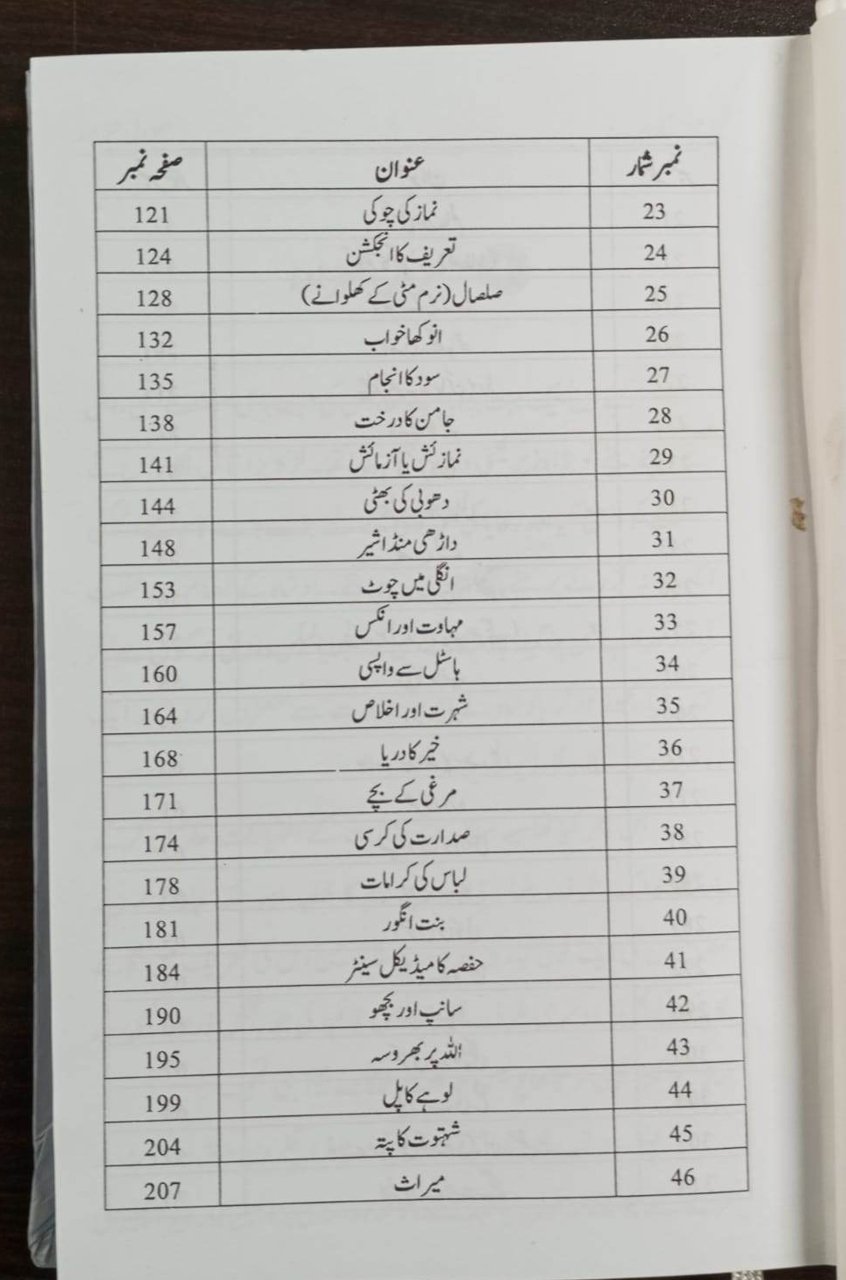 نمبر شمار عنوان صفحہ نمبر
23 نماز کی چوکی 121
24 تعریف کا انجکشن 124
25 صلصال (نرم مٹی کے کھلوانے) 128
26 انوکھا خواب 132
27 سود کا انجام 135
28 جامن کا درخت 138
29 نمازئش یا آزمائش 141
30 دھوبی کی بھٹی 144
31 داڑھی منڈا شیر 148
32 انگلی میں چوٹ 153
33 مہاوت اور انکس 157
34 ہاسٹل سے واپسی 160
35 شہرت اور اخلاص 164
36 خیر کا دریا 168
37 مرغی کے بچے 171
38 صدارت کی کرسی 174
39 لباس کی کرامات 178
40 بنت انگور 181
41 حفصہ کا میڈیکل سینٹر 184
42 سانپ اور بچھو 190
43 اللہ پر بھروسہ 195
44 لوہے کا پل 199
45 شہتوت کا پتہ 204
46 میراث 207